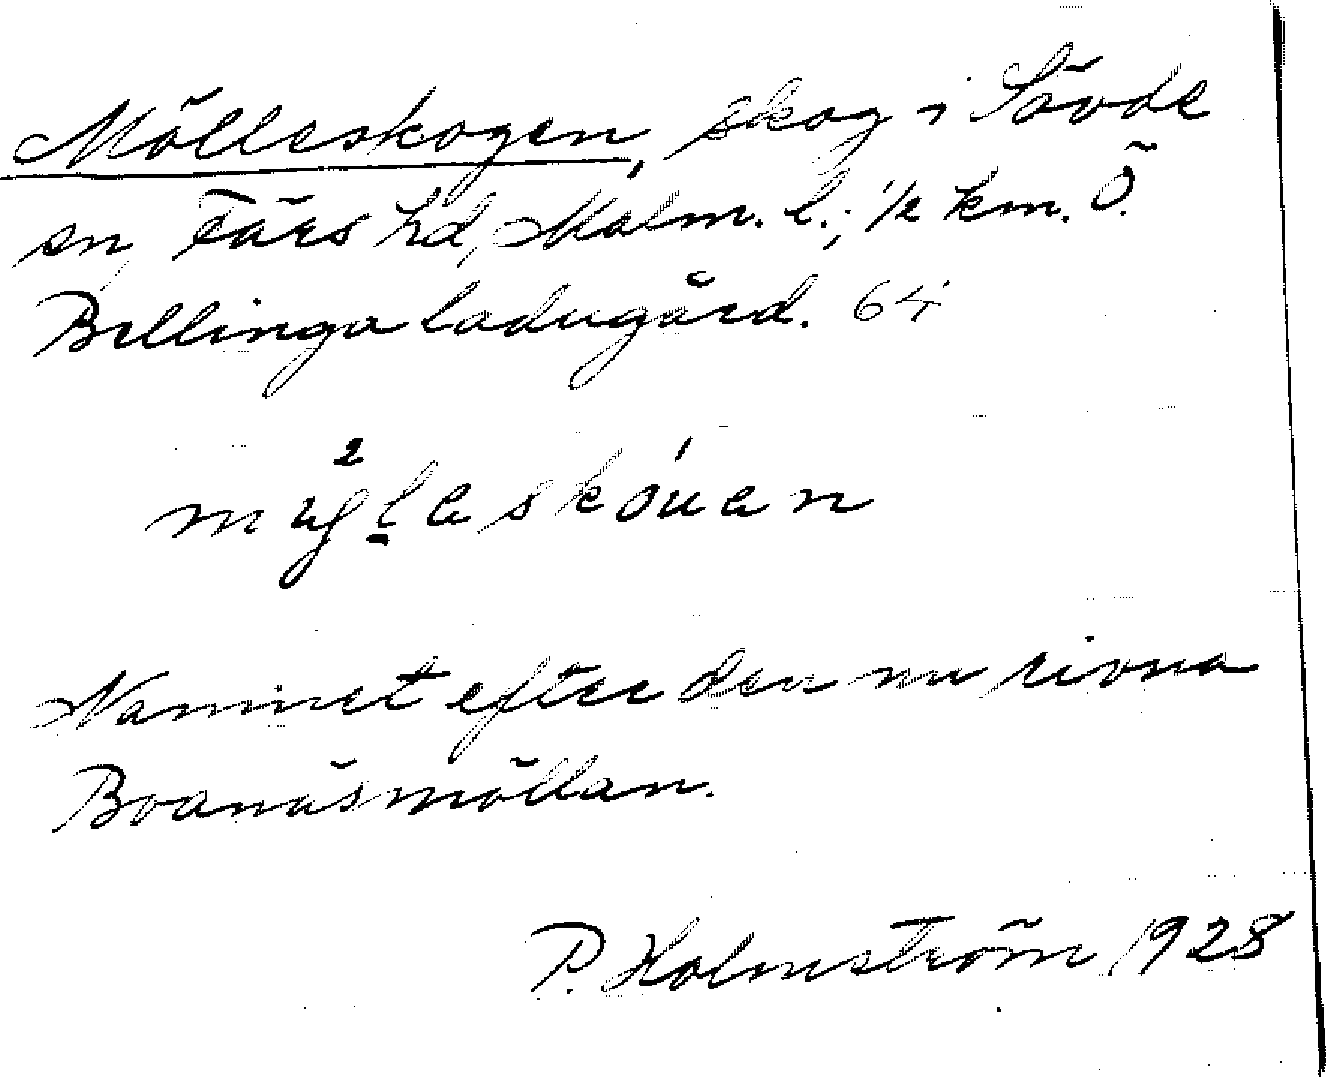 Mölleskogen, skog i Sövde
sn, Färs hd, Malm. l.; 1/2 km. Ö.
Bellinga ladugård. 64
Namnet efter den nu rivna
Boanäsmöllan.
P. Holmström 1928